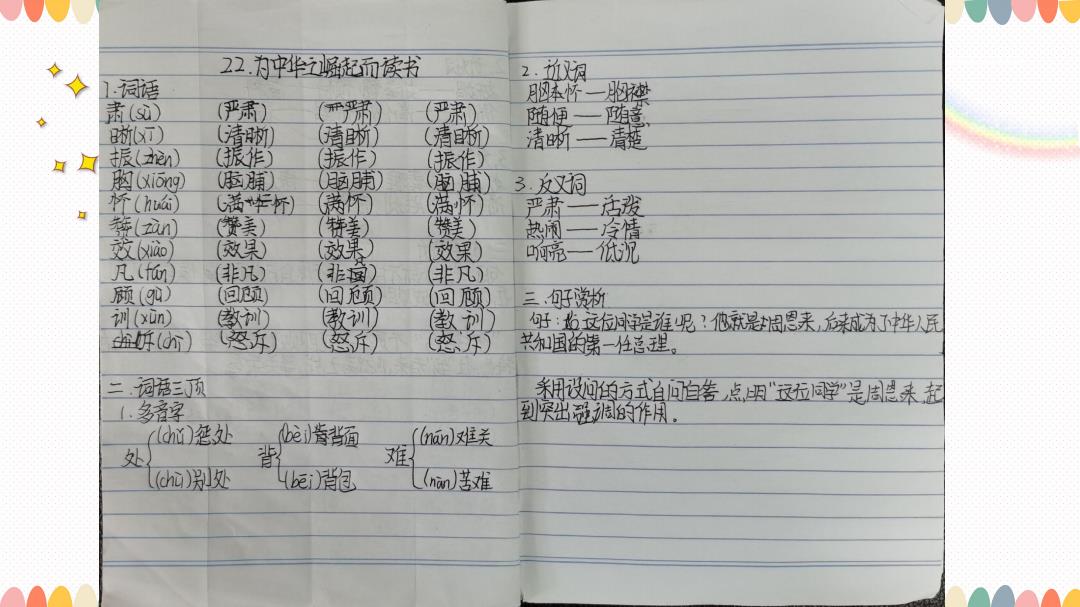 22.为中华之崛起而读书
1.词语
肃(sù) (严肃) (严肃) (严肃)
晰(xī) (清晰) (清晰) (清晰)
振(zhèn) (振作) (振作) (振作)
胸(xiōng) (胸脯) (胸脯) (胸脯)
怀(huái) (满怀) (满怀) (满怀)
赞(zàn) (赞美) (赞美) (赞美)
效(xiào) (效果) (效果) (效果)
凡(fán) (非凡) (非凡) (非凡)
顾(gù) (回顾) (回顾) (回顾)
训(xùn) (教训) (教训) (教训)
斥(chì) (怒斥) (怒斥) (怒斥)
二.词语三顶
1.多音字
处 (chǔ)惩处 背 (bèi)背面 难 (nán)难关
(chù)别处 (bēi)背包 (nàn)苦难
2.近义词
胸怀——胸襟
随便——随意
清晰——清楚
3.反义词
严肃——活泼
热闹——冷清
响亮——低沉
三.句子赏析
句:这位同学是谁呢?他就是周恩来,后来成为了中华人民
共和国的第一任总理。
采用设问的方式自问自答,点明"这位同学"是周恩来,起
到突出强调的作用。